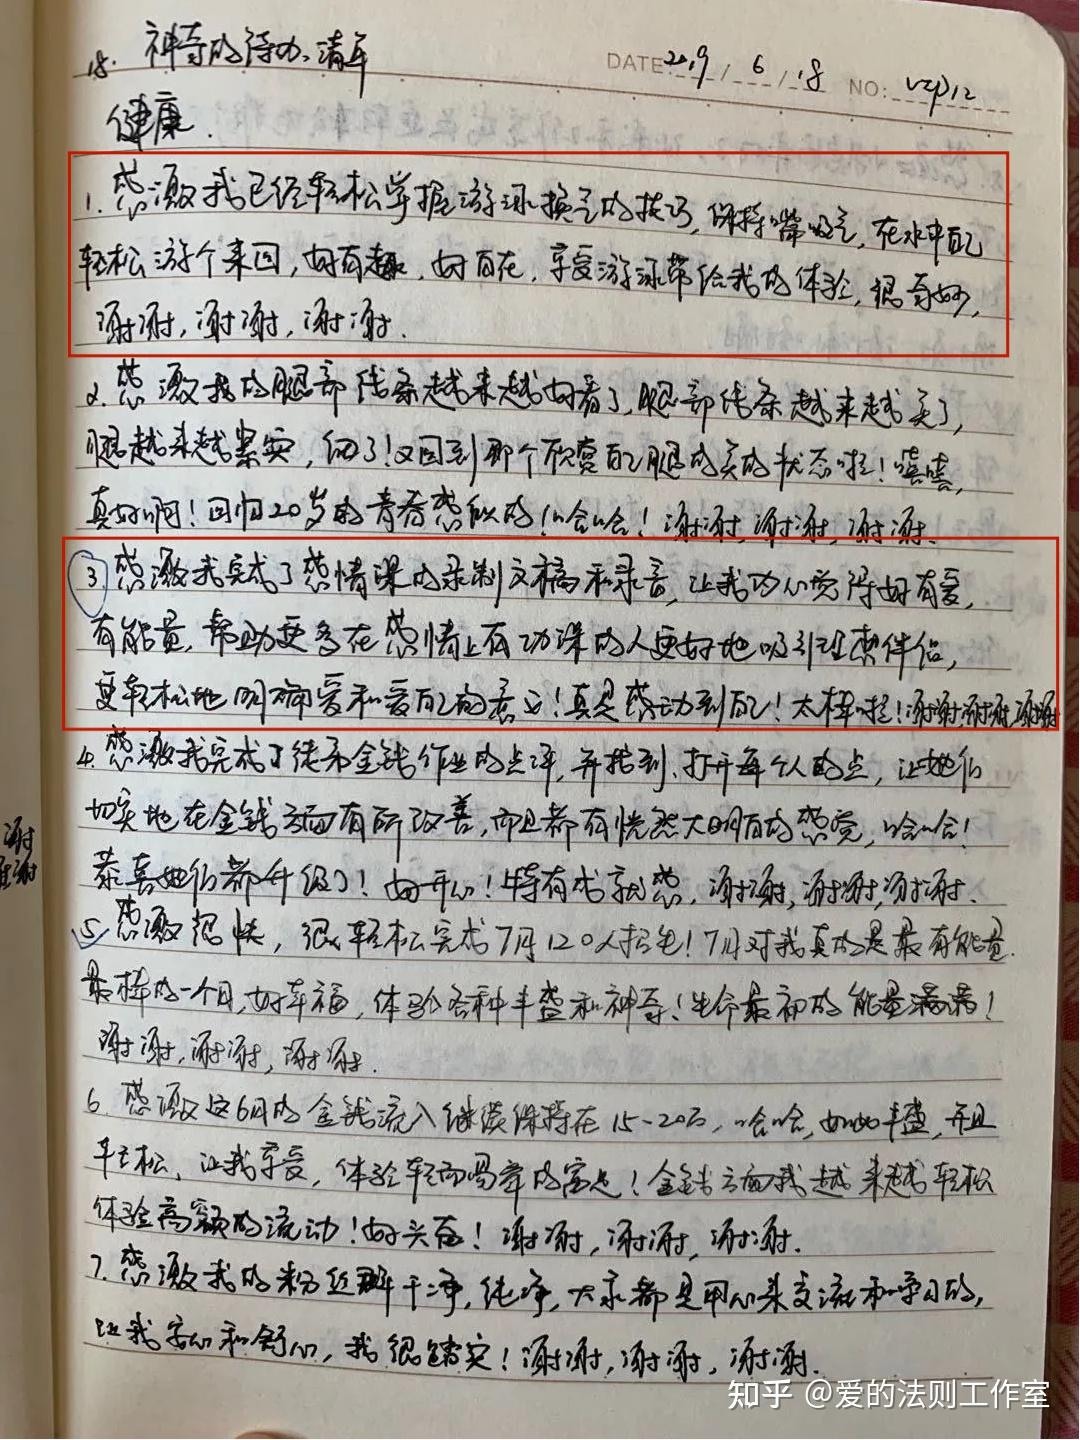 18. 神奇的待办清单
DATE 2019 / 6 / 18 NO: vip12
健康.
1. 感激我已经轻松掌握游泳换气的技巧, 保持嘴吸气, 在水中自己
轻松游个来回, 好有趣, 好自在, 享受游泳带给我的体验, 很奇妙,
谢谢, 谢谢, 谢谢.
2. 感激我的腿部线条越来越好看了, 腿部线条越来越美了,
腿越来越紧实, 细了! 又回到那个欣赏自己腿的美的状态啦! 嘻嘻,
真好啊! 回归20岁的青春感似的! 哈哈! 谢谢, 谢谢, 谢谢.
3 感激我完成了感情课的录制文稿和录音, 让我内心觉得好有爱,
有能量, 帮助更多在感情上有功课的人更好地吸引理想伴侣,
更轻松地明确爱和爱自己的意义! 真是感动到自己! 太棒啦! 谢谢, 谢谢, 谢谢
4. 感激我完成了徒弟金钱作业的点评, 并找到、打开每个人的点, 让她们
切实地在金钱方面有所改善, 而且都有恍然大明白的感觉, 哈哈!
恭喜她们都升级了! 好开心! 特有成就感, 谢谢, 谢谢, 谢谢.
5 感激很快, 很轻松完成7月120人招生! 7月对我真的是最有能量
最棒的一个月, 好幸福, 体验各种丰盛和神奇! 生命最初的能量满满!
谢谢, 谢谢, 谢谢.
6. 感激这6月的金钱流入继续保持在15-20万, 哈哈, 如此丰盛, 并且
轻松, 让我享受, 体验轻而易举的富足! 金钱方面我越来越轻松
体验高额的流动! 好兴奋! 谢谢, 谢谢, 谢谢.
7. 感激我的粉丝群干净, 纯净, 大家都是用心来交流和学习的,
让我安心和舒心, 我很踏实! 谢谢, 谢谢, 谢谢.
谢谢
谢谢
知乎 @爱的法则工作室